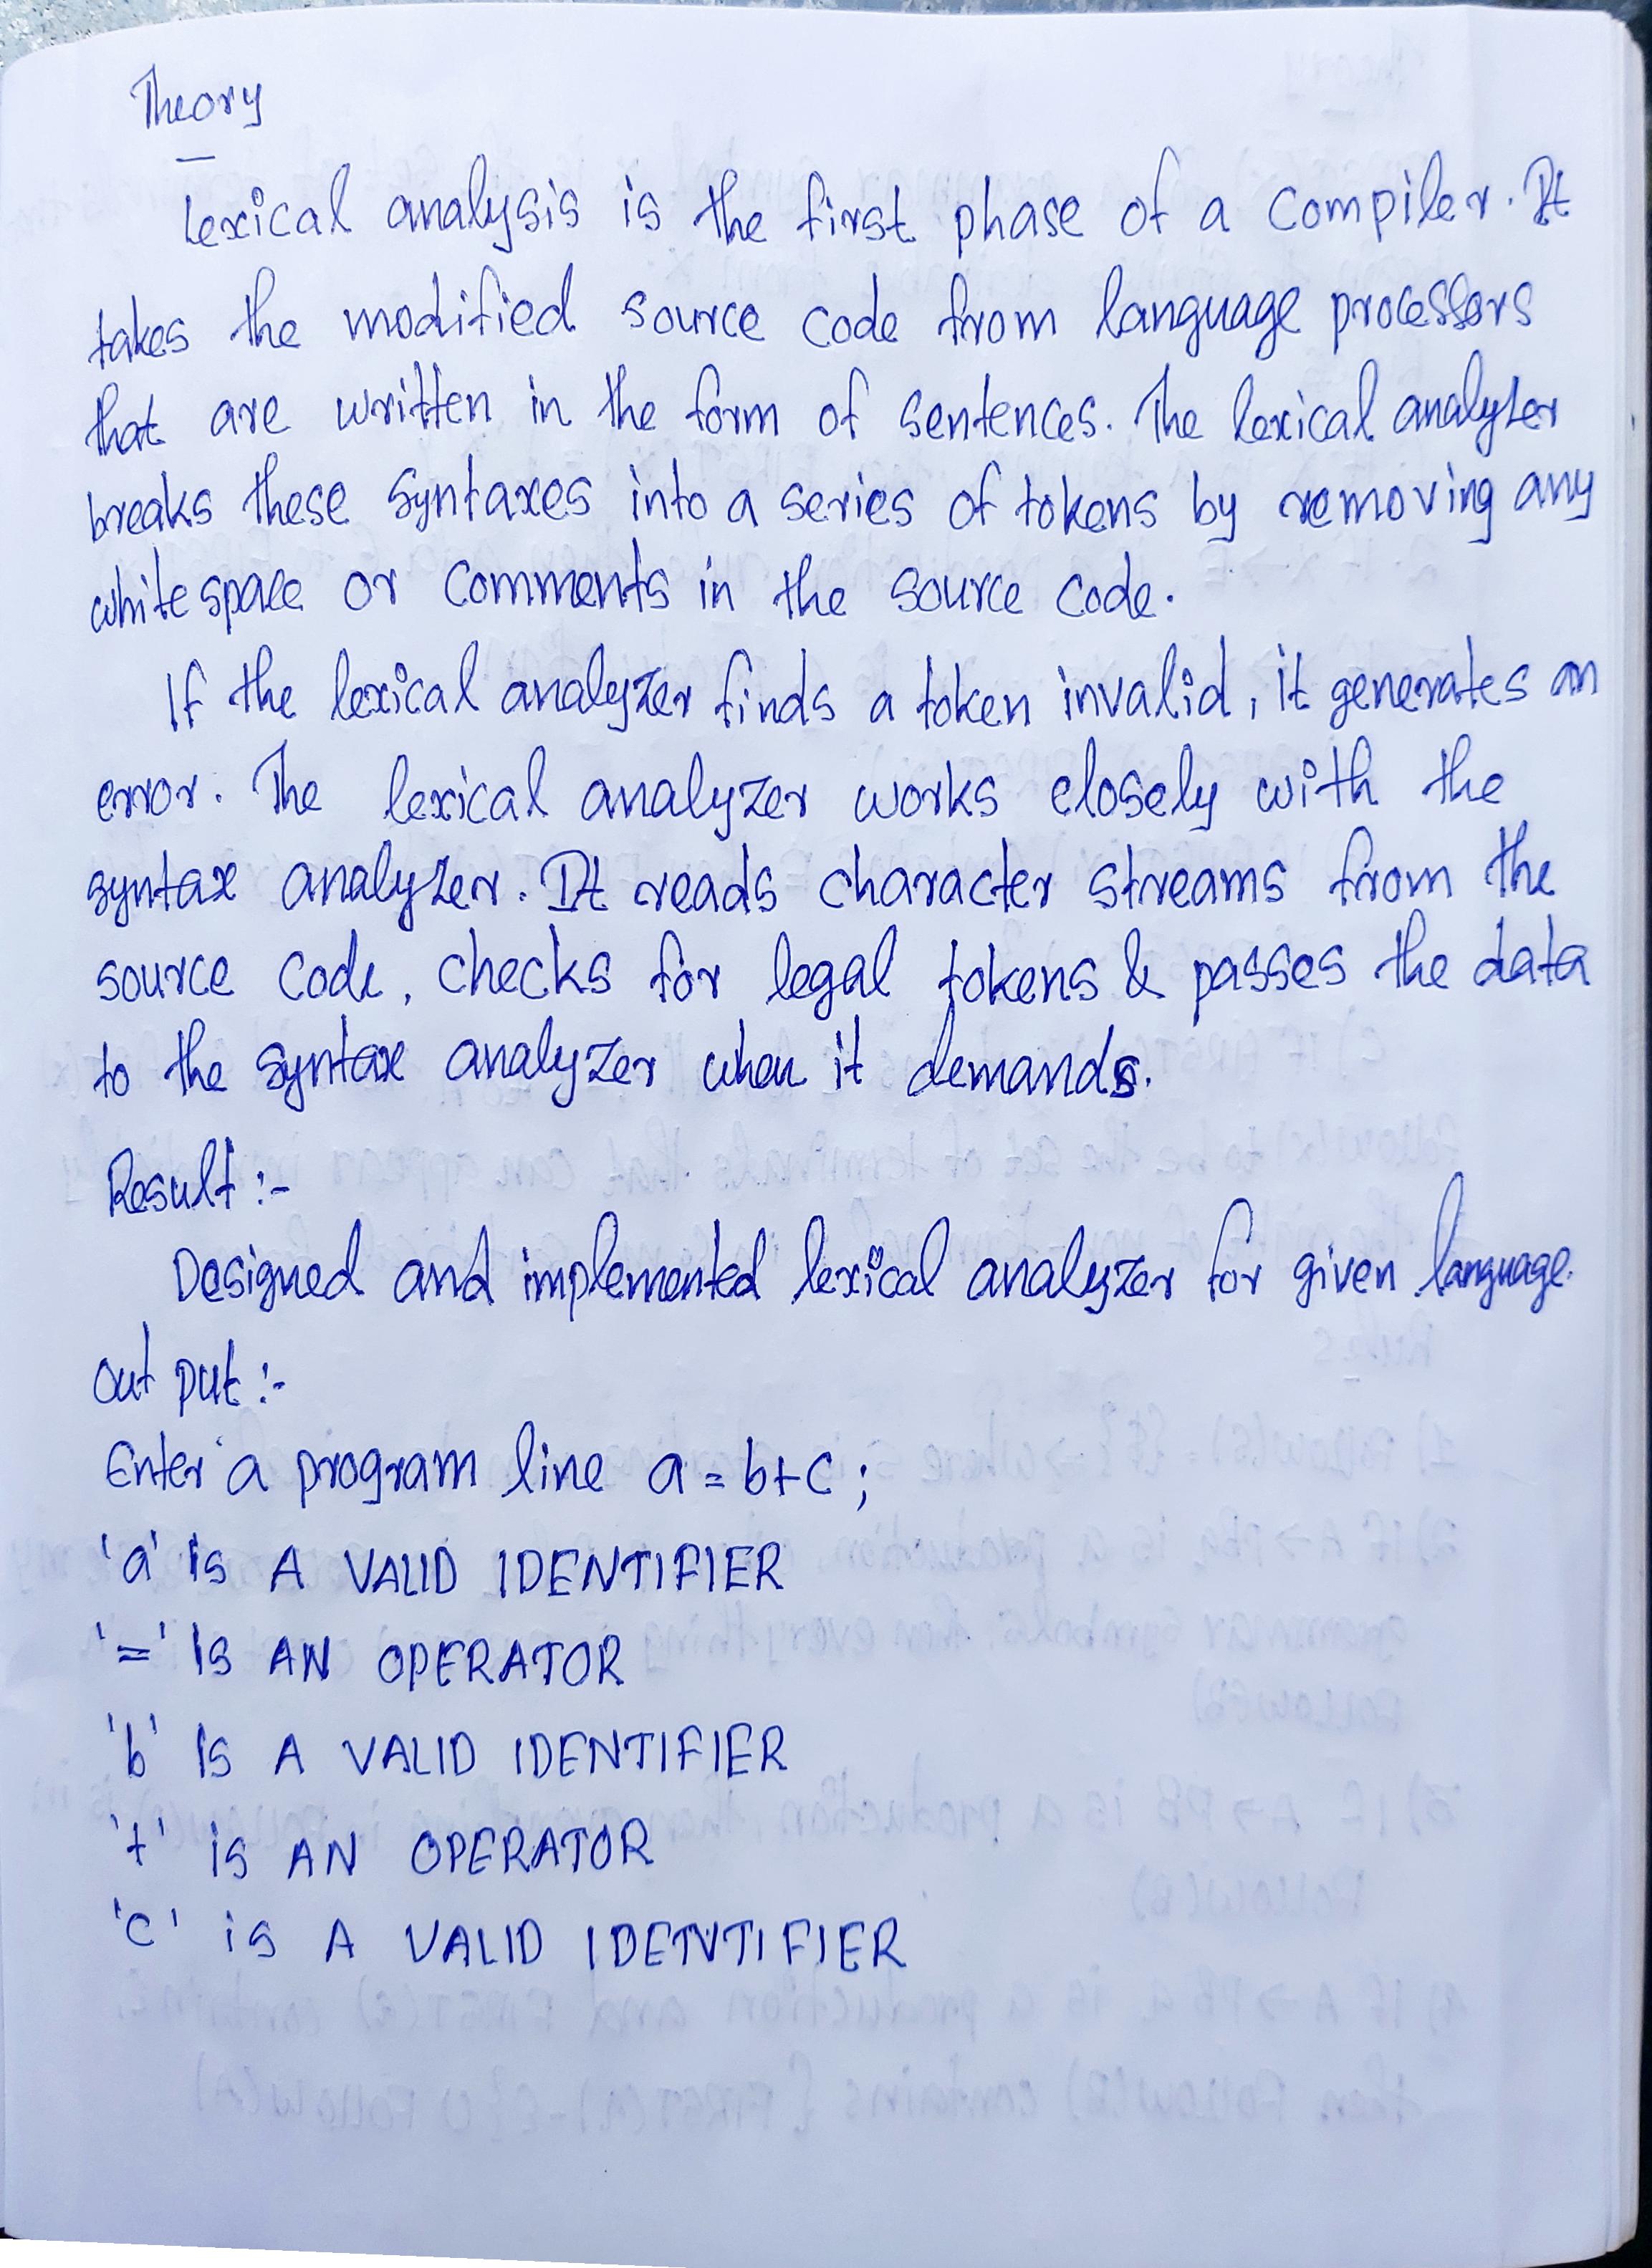 Theory
Lexical analysis is the first phase of a compiler. It
takes the modified source code from language processors
that are written in the form of sentences. The lexical analyzer
breaks these syntaxes into a series of tokens by removing any
whitespace or comments in the source code.
If the lexical analyzer finds a token invalid, it generates an
error. The lexical analyzer works closely with the
syntax analyzer. It reads character streams from the
source code, checks for legal tokens & passes the data
to the syntax analyzer when it demands.
Result :-
Designed and implemented lexical analyzer for given language.
out put :-
Enter a program line a = b+c ;
'a' is A VALID IDENTIFIER
'=' is AN OPERATOR
'b' is A VALID IDENTIFIER
'+' is AN OPERATOR
'c' is A VALID IDETVTIFIER